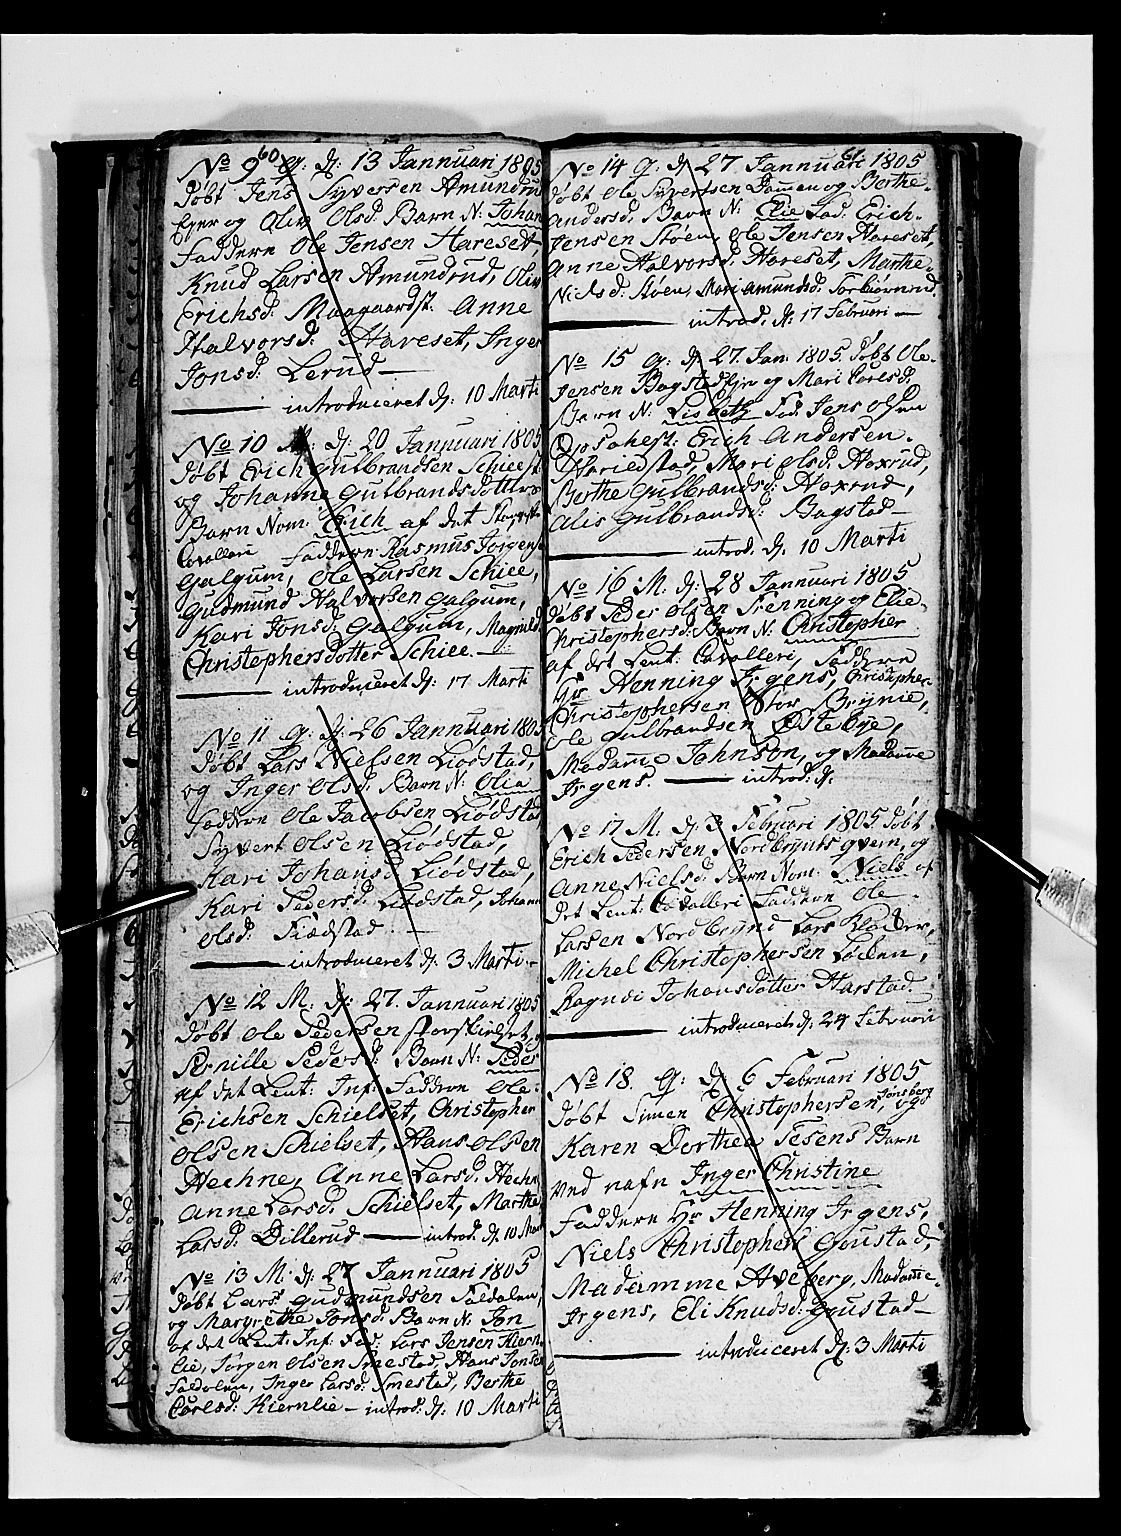 60
No 9 q: dj: 13 Jannuari 1805
døbt Jens Syversen Amundrud
Ejer og Oliv Olsd: Barn N: Johan
Faddern Ole Jensen Hareset,
Knud Larsen Amundrud, Oliv
Erichsd: Maagaardst. Anne
Halvorsd: Hareset, Inger
Jonsd: Lerud —
introduceret dj: 10 Marti
No 10 M: dj: 20 Jannuari 1805
døbt Erich Gulbrandsen Schieest
og Johanne Gulbrandsdotter
Barn Nom: Erich af det
Cavalleri Faddern Rasmus Jørgens
Galgum, Ole Larsen Schiee,
Gudmund Halvorsen Galgum,
Kari Jonsd: Galgum, Magnild
Christophersdotter Schiee. —
introduceret dj: 17 Marti
No 11 q: dj: 26 Jannuari 1805
døbt Lars Nielsen Liødstad,
og Inger Olsd: Barn N: Olia
Faddern Ole Jacobsen Liødstad
Syvert Olsen Liødstad,
Kari Johansd: Liødstad,
Kari Pedersd: Liødstad, Johann
Olsd: Fiædstad. —
introduceret dj: 3 Marti —
No 12 M: dj: 27. Jannuari 1805
døbt Ole Pedersen og
Pernille Pedersd: Barn N: Peder
af det Lent: Inf: Faddern Ole
Erichsen Schielset, Christopher
Olsen Schielset, Hans Olsen
Hechne, Anne Larsd: Hechn
Anne Larsd: Schielset, Marthe
Larsd: Dillerud — introd. dj. 10 Mart
No 13 M: dj: 27 Jannuari 1805
døbt Lars Gudmundsen Faldalen,
og Margrethe Jonsd: Barn N: Jon
af det Lent: Inf: Fad: Lars Jensen Kiern
lie, Jørgen Olsen Smestad, Hans Jonsen
Faldalen, Inger Larsd: Smestad, Berthe
Carlsd: Kiernlie — introd: dj: 10 Marti
61
No 14 q: dj 27 Jannuari 1805
døbt Ole Syvertsen Dammen og Berthe
Andersd: Barn N: Elie Fad: Erich
Jensen Støen, Ole Jensen Hareset,
Anne Halvorsd: Hareset, Marthe
Nielsd: Støen, Mari Amundsd: Torbiørnrud.
introd. dj: 17 Februari —
No 15 q: dj 27. Jan: 1805 døbt Ole
Jensen Bagstad Ejer og Mari Carlsd:
Barn N: Lisbeth Fad: Jens Olsen
Opsahest: Erich Andersen
Hvriedstad, Mari Olsd: Hoxrud,
Berthe Gulbrandsd: Hoxrud,
Alis Gulbrandsd: Bagstad —
introd. dj. 10 Marti
No 16 M. dj: 28 Jannuari 1805
døbt Peder Olsen Frenning og Elie
Christophersd: Barn N. Christopher
af det Lent: Cavalleri, Faddern
Hr Henning Irgens, Christopher
Christophersen Stor Brynie,
Ole Gulbrandsen Østebye,
Madame Johnson, og Madamme
Irgens. — introd: dj.
No 17 M. dj. 3 Februari 1805 døbt
Erich Pedersen Nordbrynts qvern, og
Anne Nielsd: Barn Nom: Niels af
det Lent: Cavalleri Faddern Ole
Larsen Nordbrynd Lars
Michel Christophersen Løchen,
Ragndi Johansdotter Harstad.
introduceret dj. 24 Februari
No 18. q: dj 6 Februari 1805
døbt Simen Christophersen, Tonsberg og
Karen Dorthea Tesens Barn
ved nafn Inger Christine
Faddern Hr Henning Irgens,
Niels Christophers Goustad,
Madamme Aveberg, Madame
Irgens, Eli Knudsd: Goustad —
introduceret dj. 3 Marti